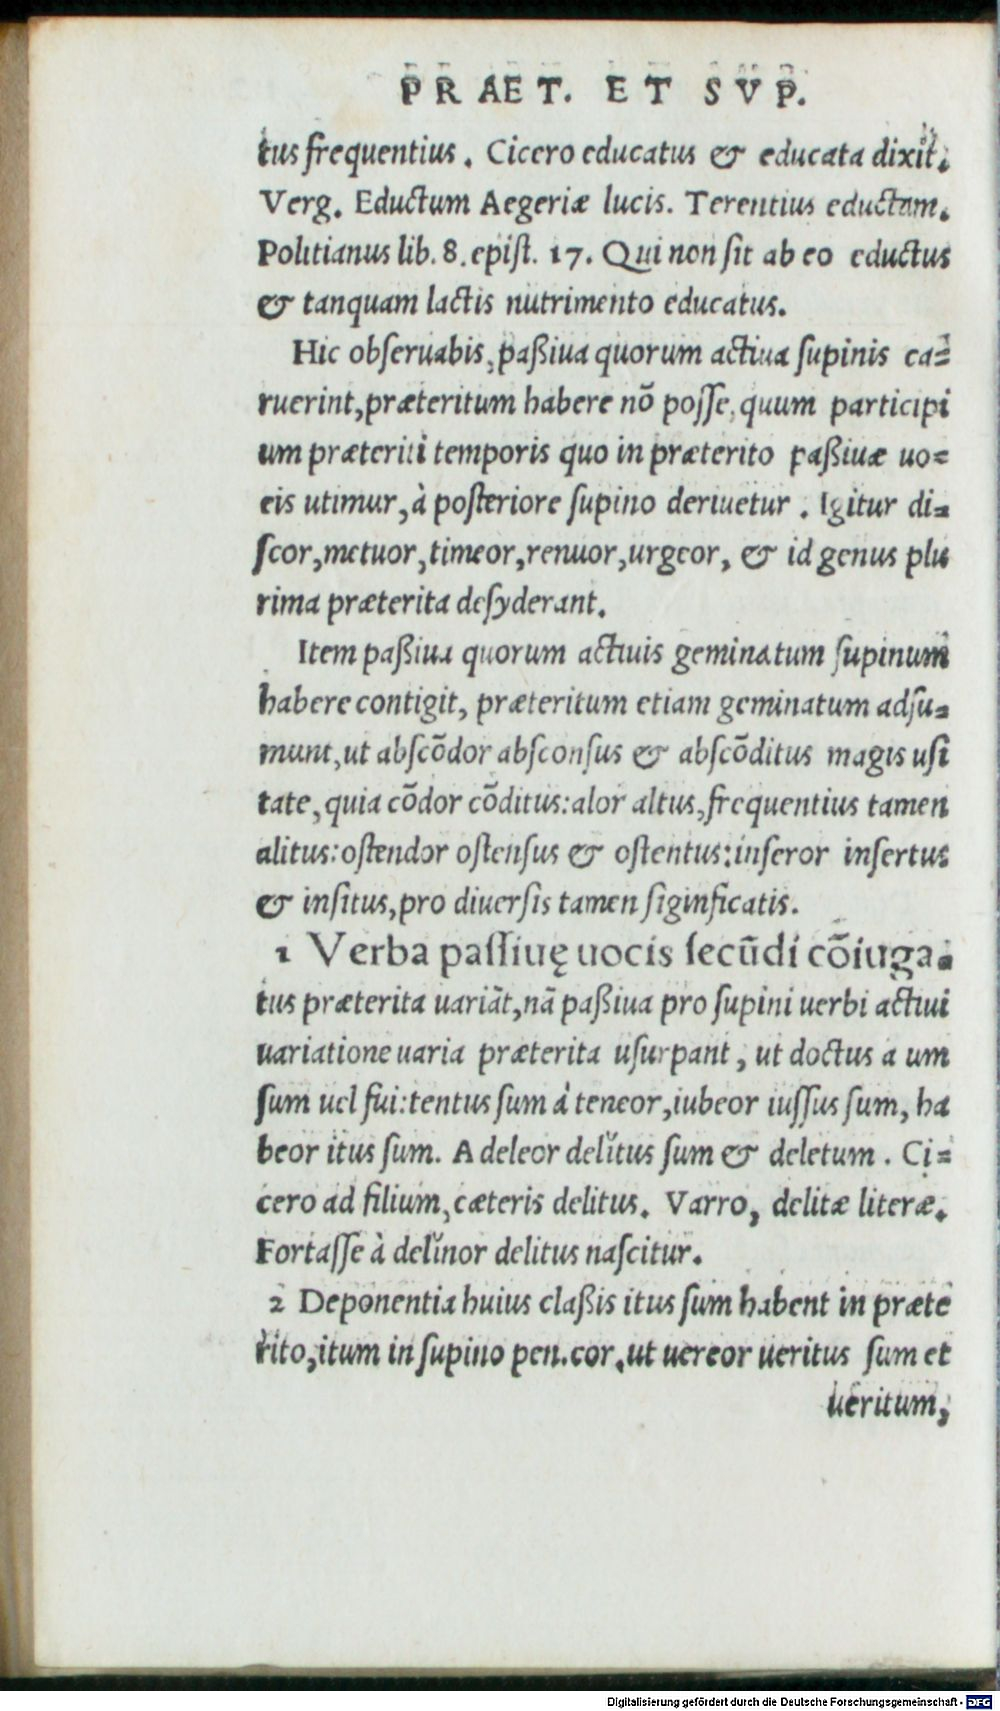 PRAET. ET SVP.
tus frequentius. Cicero educatus & educata dixit.
Verg. Eductum Aegeriæ lucis. Terentius eductam.
Politianus lib. 8. epiſt. 17. Qui non ſit ab eo eductus
& tanquam lactis nutrimento educatus.
Hic obſeruabis, paßiua quorum actiua ſupinis ca=
ruerint, præteritum habere nõ poſſe, quum participi
um præteriti temporis quo in præterito paßiuæ uo=
cis utimur, à poſteriore ſupino deriuetur. Igitur di=
ſcor, metuor, timeor, renuor, urgeor, & id genus plu
rima præterita deſyderant.
Item paßiua quorum actiuis geminatum ſupinum
habere contigit, præteritum etiam geminatum adſu=
munt, ut abſcõdor abſconſus & abſcõditus magis uſi
tate, quia cõdor cõditus: alor altus, frequentius tamen
alitus: oſtendor oſtenſus & oſtentus: inſeror inſertus
& inſitus, pro diuerſis tamen ſiginficatis.
1 Verba paſſiuę uocis ſecũdi cõiuga=
tus præterita uariãt, nã paßiua pro ſupini uerbi actiui
uariatione uaria præterita uſurpant, ut doctus a um
ſum uel fui: tentus ſum à teneor, iubeor iuſſus ſum, ha
beor itus ſum. A deleor delĭtus ſum & deletum. Ci=
cero ad filium, cæteris delitus. Varro, delitæ literæ.
Fortaſſe à delĭnor delitus naſcitur.
2 Deponentia huius claßis itus ſum habent in præte
rito, itum in ſupino pen. cor. ut uereor ueritus ſum et
ueritum,
Digitalisierung gefördert durch die Deutsche Forschungsgemeinschaft - DFG